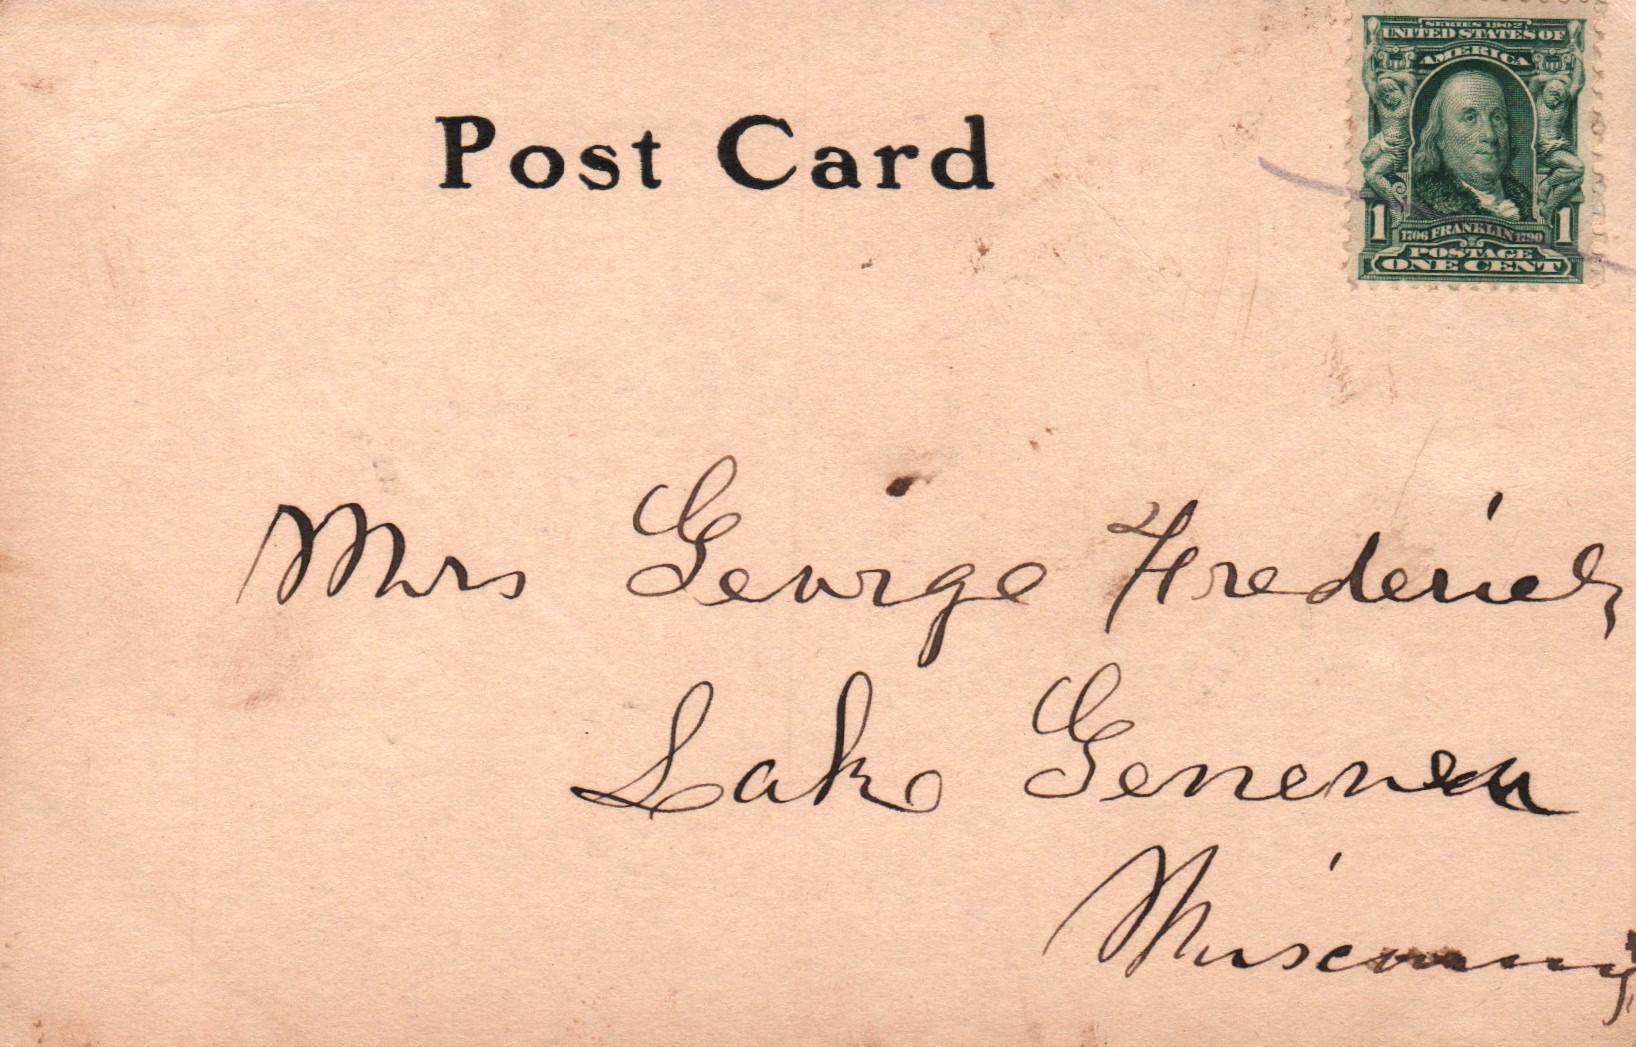 SERIES 1902
UNITED STATES OF
AMERICA
1 1
1706 FRANKLIN 1790
POSTAGE
ONE CENT
Post Card
Mrs George Frederick
Lake Geneva